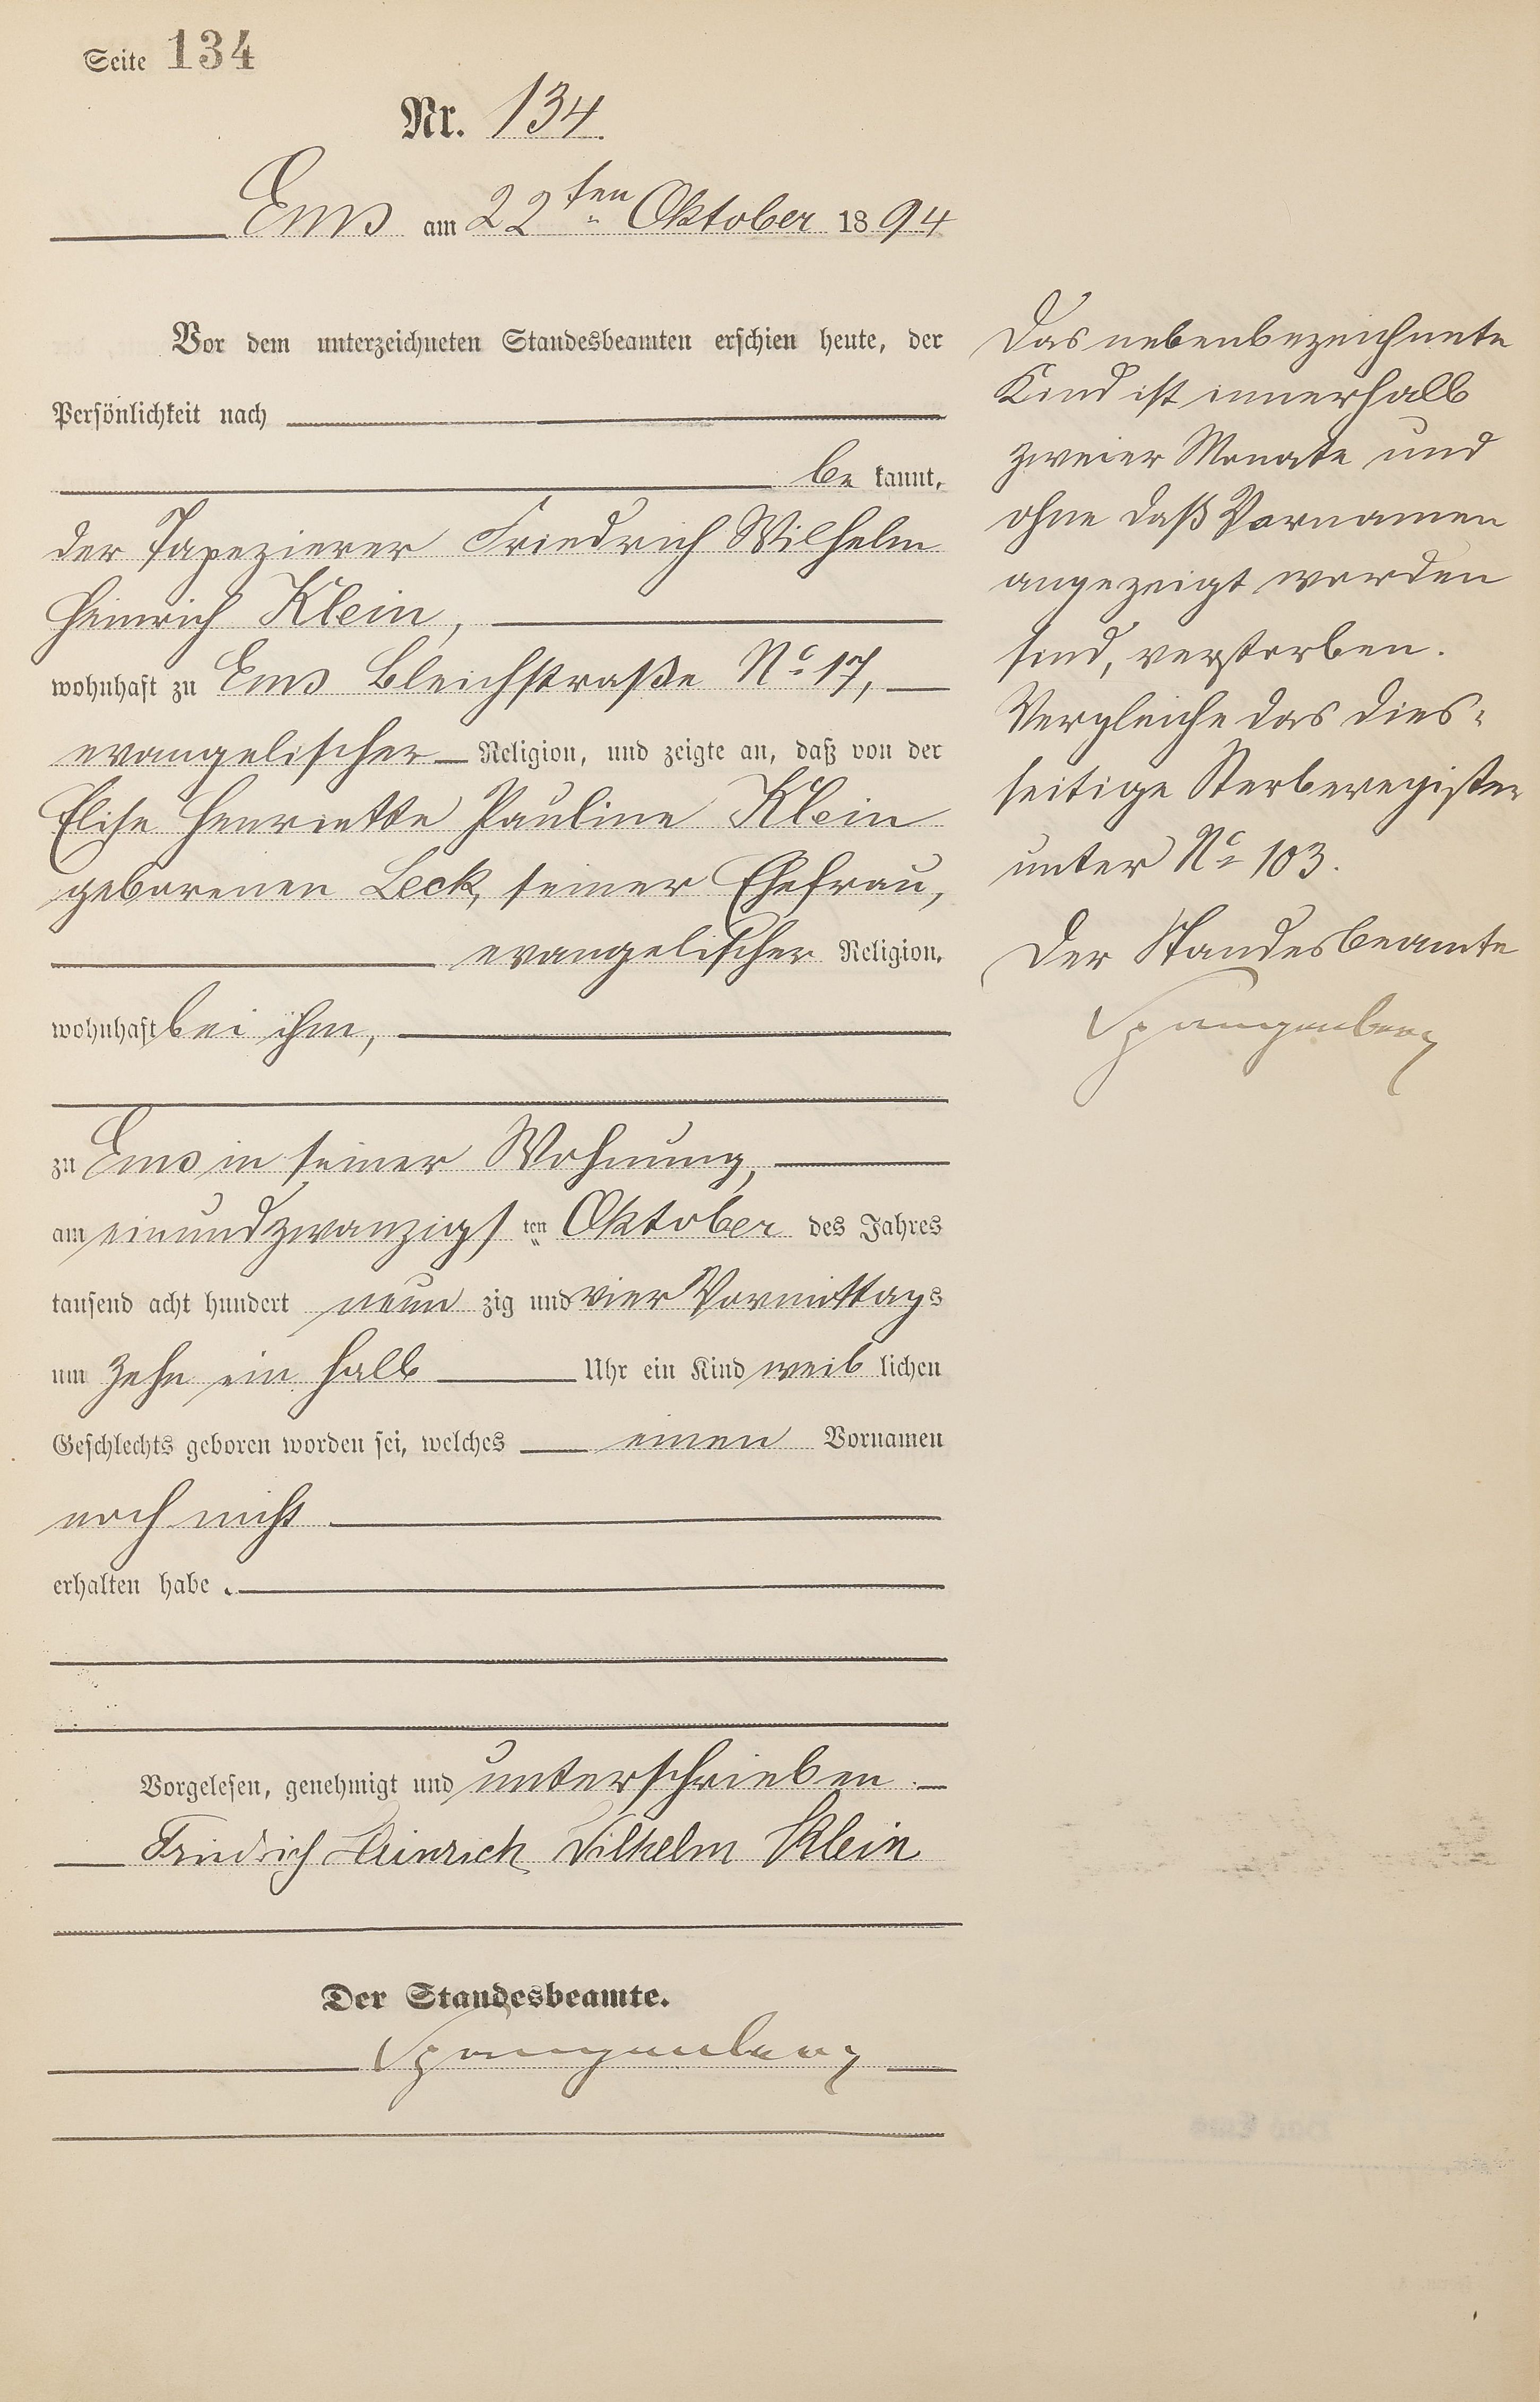 Seite 134
Nr. 134.
Ems am 22ten Oktober 1894
Vor dem unterzeichneten Standesbeamten erschien heute, der
Persönlichkeit nach
be kannt,
der Tapezierer Friedrich Wilhelm
Heinrich Klein,
wohnhaft zu Ems Bleichstraße No 17,
evangelischer Religion, und zeigte an, daß von der
Elise Henriette Pauline Klein
geborenen Leck, seiner Ehefrau,
evangelischer Religion,
wohnhaft bei ihm,
zu Ems in seiner Wohnung,
am einundzwanzigsten Oktober des Jahres
tausend acht hundert neun zig und vier Vormittags
um zehn ein halb Uhr ein Kind weib lichen
Geschlechts geboren worden sei, welches einen Vornamen
noch nicht
erhalten habe.
Vorgelesen, genehmigt und unterschrieben.
Friedrich Heinrich Wilhelm Klein
Der Standesbeamte.
Spangenberg
Das nebenbezeichnete
Kind ist innerhalb
zweier Monate und
ohne daß Vornamen
angezeigt worden
sind, verstorben.
Vergleiche das dies-
seitige Sterberegister
unter No 103.
Der Standesbeamte
Spangenberg